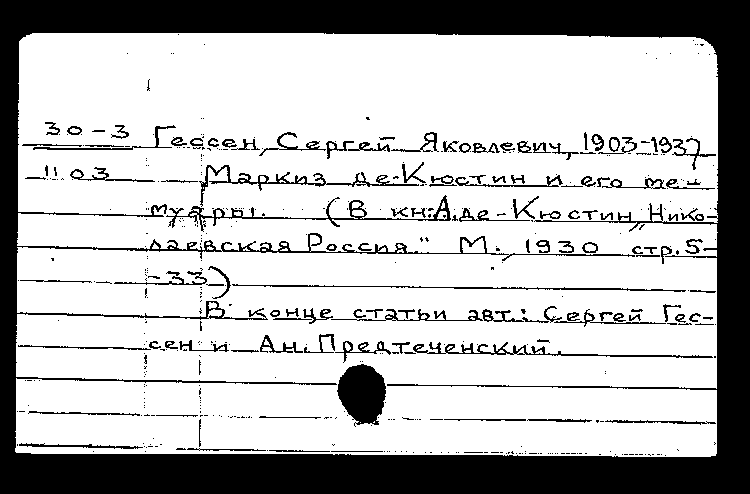 30-3 Гессен, Сергей Яковлевич, 1903-1937
1103 Маркиз де-Кюстин и его ме-
муары. (В кн: А. де-Кюстин „Нико-
лаевская Россия." М., 1930 стр. 5-
-33)
В конце статьи авт.: Сергей Гес-
сен и Ан. Предтеченский.